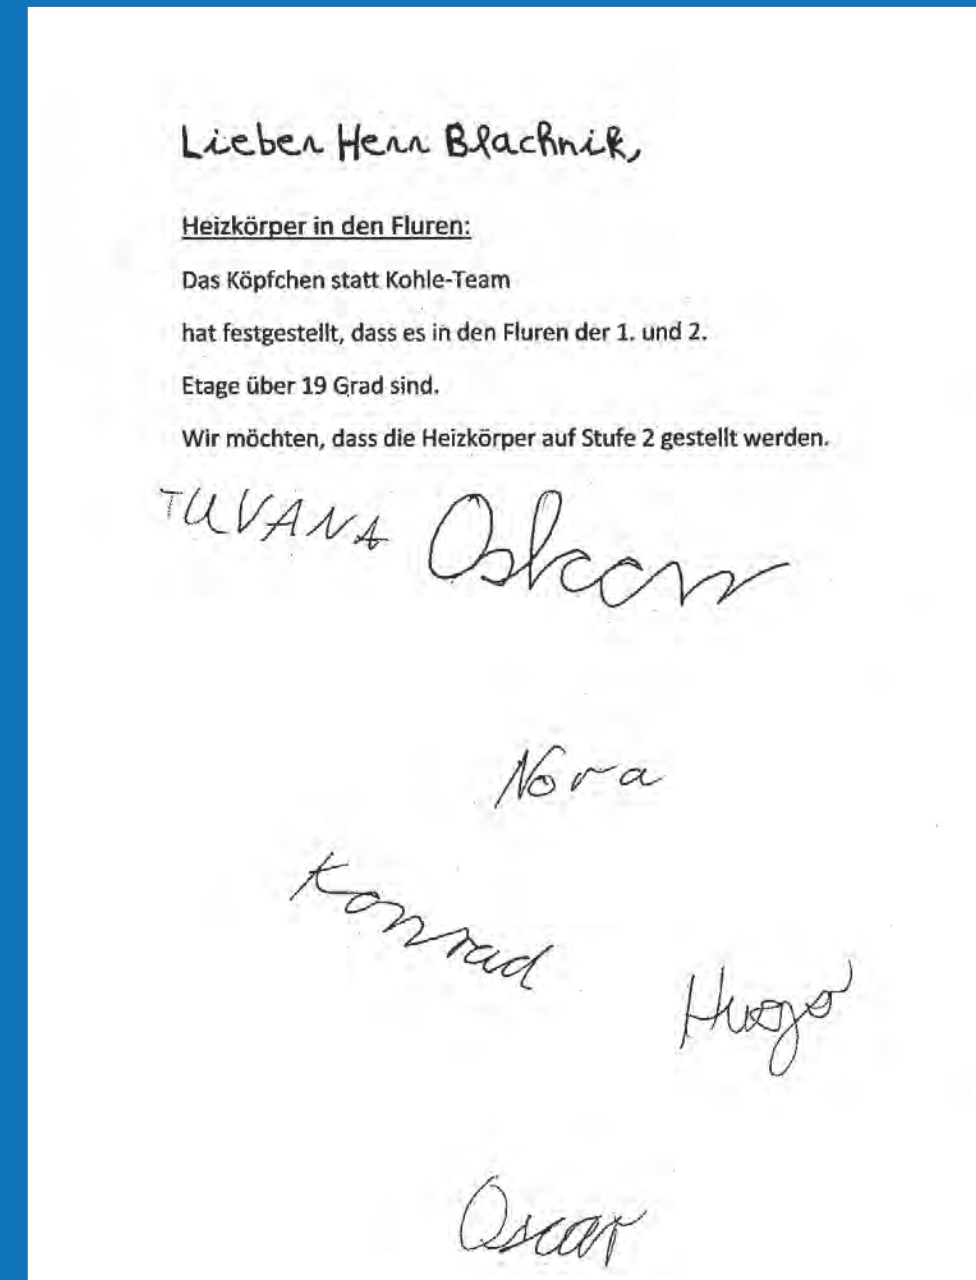 Lieber Herr Blachnik,
Heizkörper in den Fluren:
Das Köpfchen statt Kohle-Team
hat festgestellt, dass es in den Fluren der 1. und 2.
Etage über 19 Grad sind.
Wir möchten, dass die Heizkörper auf Stufe 2 gestellt werden.
TUVANA Oskar
Nora
Konrad
Hugo
Oscar